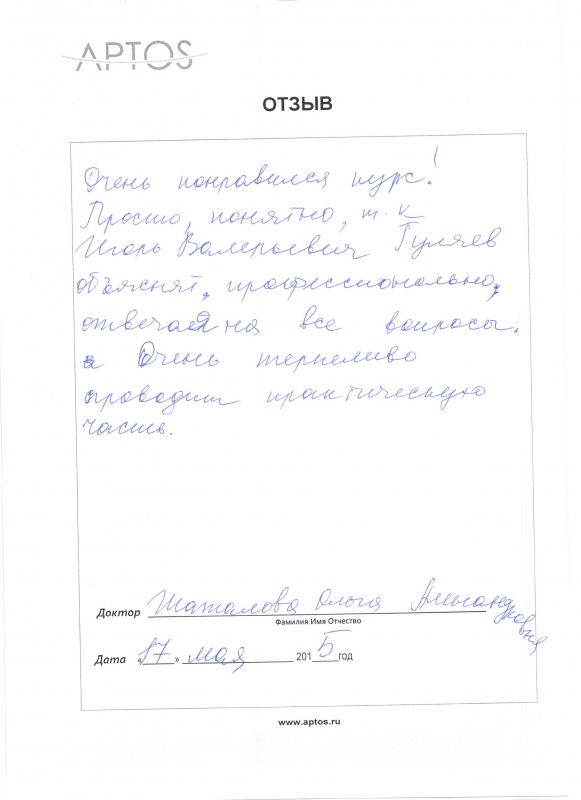 APTOS
ОТЗЫВ
Очень понравился курс!
Просто, понятно, т.к
Игорь Валерьевич Гуляев
объяснял, профессионально,
отвечая на все вопросы.
Очень терпеливо
проводит практическую
часть.
Доктор Шаталова Ольга Александровна
Фамилия Имя Отчество
Дата «17» мая 2015 год
www.aptos.ru